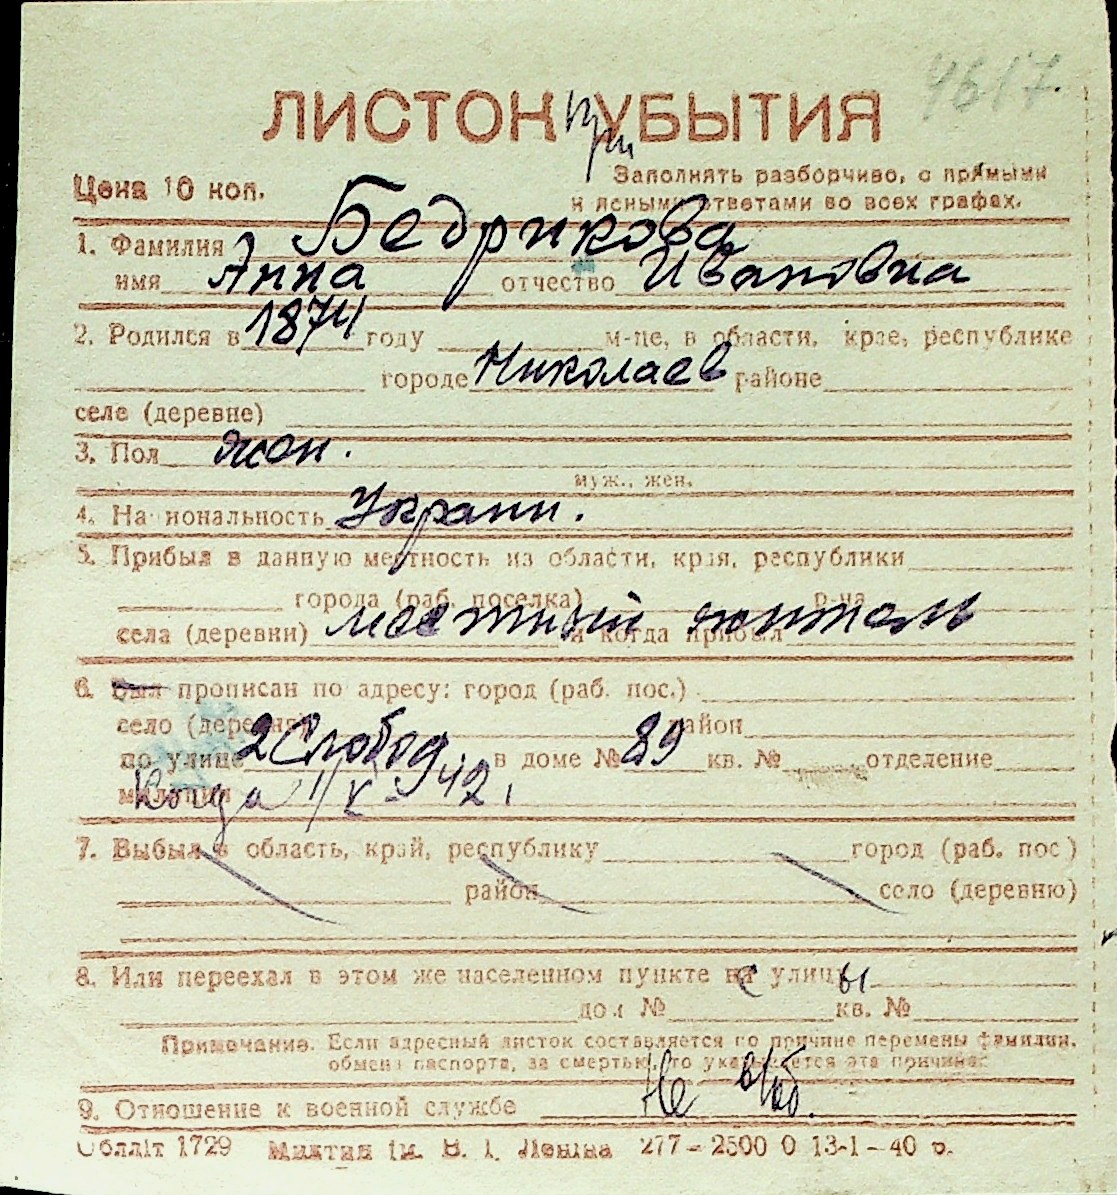 4617.
ЛИСТОК При УБЫТИЯ
Цена 10 коп.
Заполнять разборчиво, с прямыми
и ясными ответами во всех графах.
1. Фамилия Бедрикова
имя Анна отчество Ивановна
2. Родился в 1874 году м-це, в области, крае, республике
городе Николаев районе
селе (деревне)
3. Пол жен.
муж., жен.
4. На иональность Украин.
5. Прибыл в данную местность из области, края, республики
города (раб. поселка) р-на
села (деревни) местный житель и когда прибыл
6. Был прописан по адресу: город (раб. пос.)
село (деревня) район
по улице 2 Слобод в доме № 89 кв. № отделение
милиции Когда 11/X-42.
7. Выбыл в область, край, республику город (раб. пос)
район село (деревню)
8. Или переехал в этом же населенном пункте на с улицы
дом № кв. №
Примечание. Если адресный листок составляется по причине перемены фамилии,
обмена паспорта, за смертью, то указывается эта причина:
9. Отношение к военной службе Не в/об.
Облліт 1729 ім. В. І. Леніна 277-2500 0 13-1-40 р.